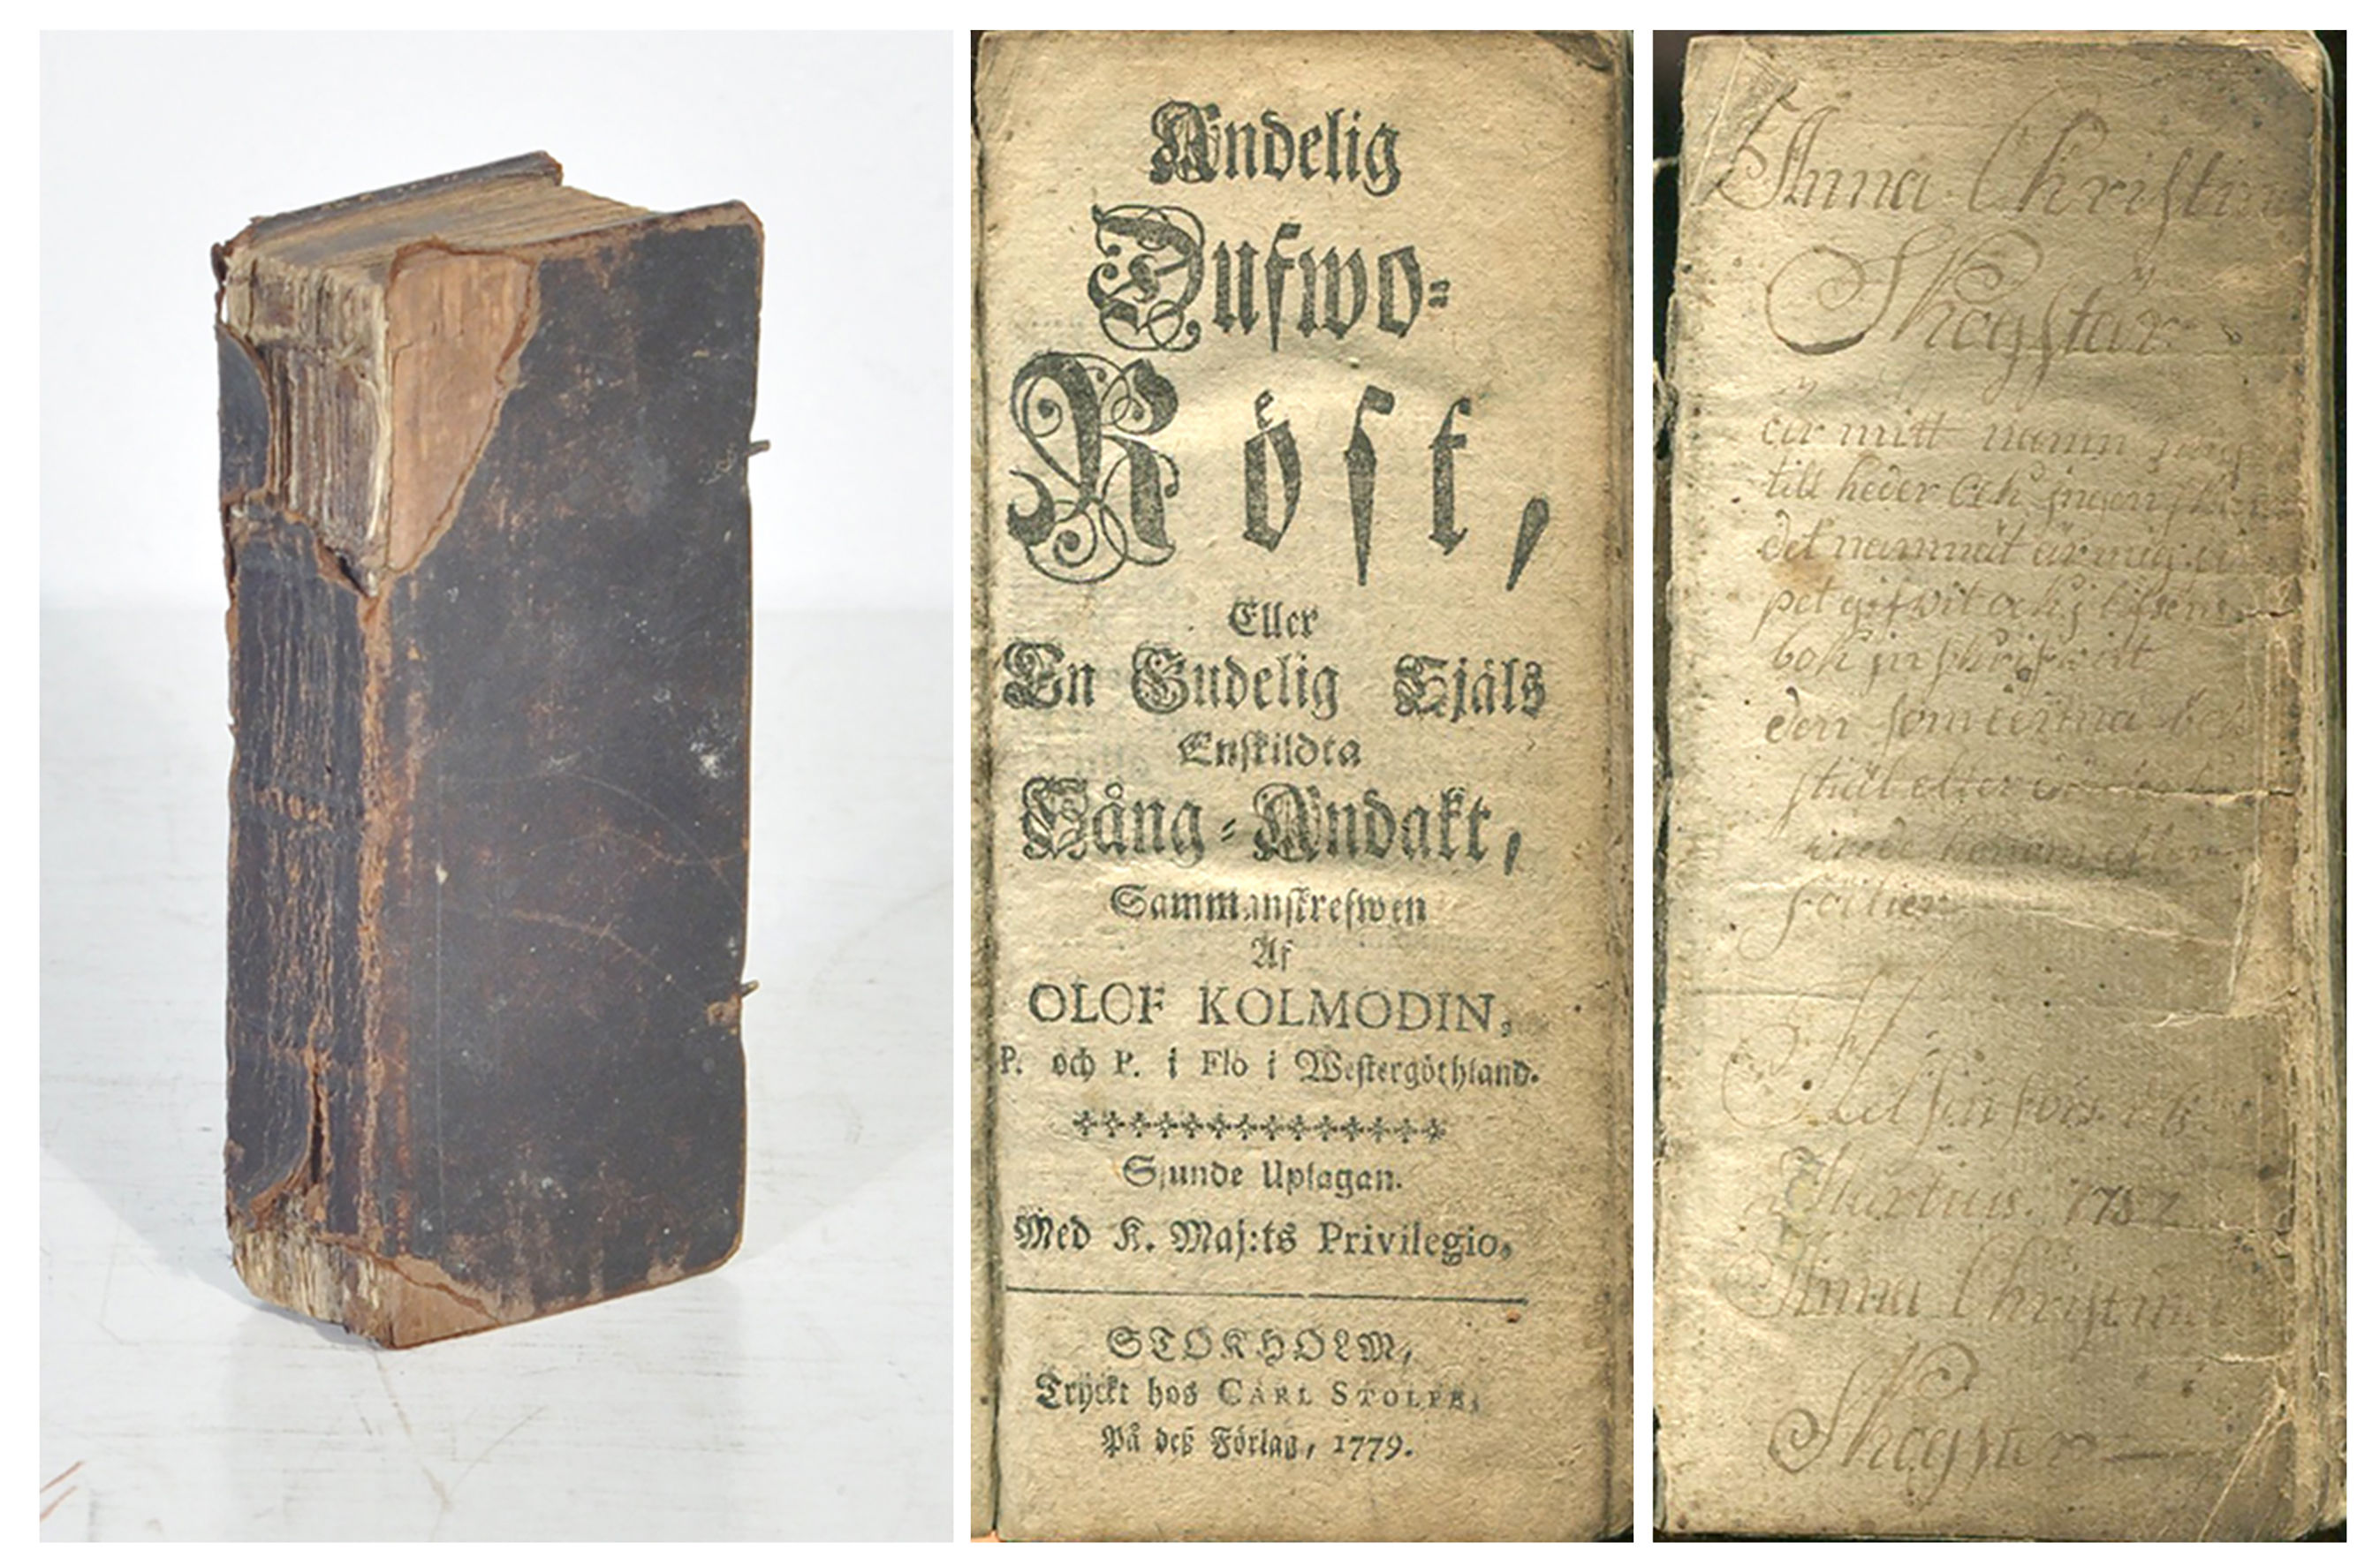 Andelig
Dufwo-
Röst,
Eller
En Gudelig Siäls
Enskildta
Sång-Andakt,
Sammanskrefwen
Af
OLOF KOLMODIN,
P. och P. i Flo i Westergöthland.
Sjunde Uplagan.
Med K. Maj:ts Privilegio,
STOKHOLM,
Tryckt hos CARL STOLPE,
På deß Förlag, 1779.
Anna Christin
Skogstär
är mitt namn
till heder och ingen
det namnät är mig
pet gifwit och i lifsens
bok in skrifwitt
den som denna bok
stiäl eller
Helsinfors
Martius. 1787
Anna Christin
Skogstär